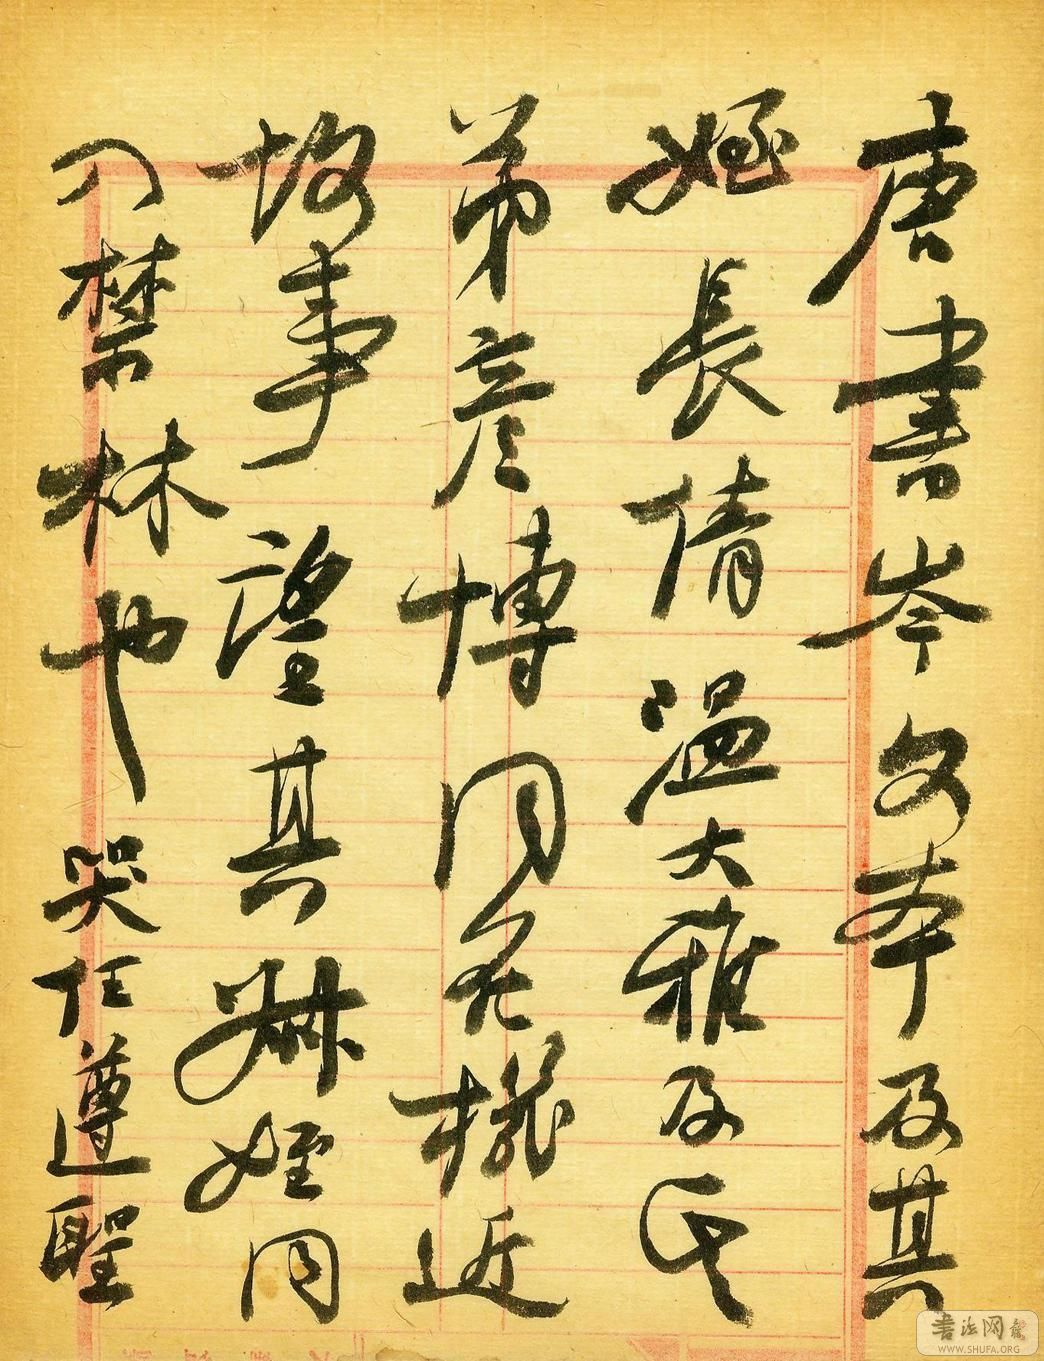 唐書岑文本及其
姪長倩溫大雅及其
弟彥博同在機近
故事望其姪同
入禁林也 哭任遵聖
書法网
WWW.SHUFA.ORG